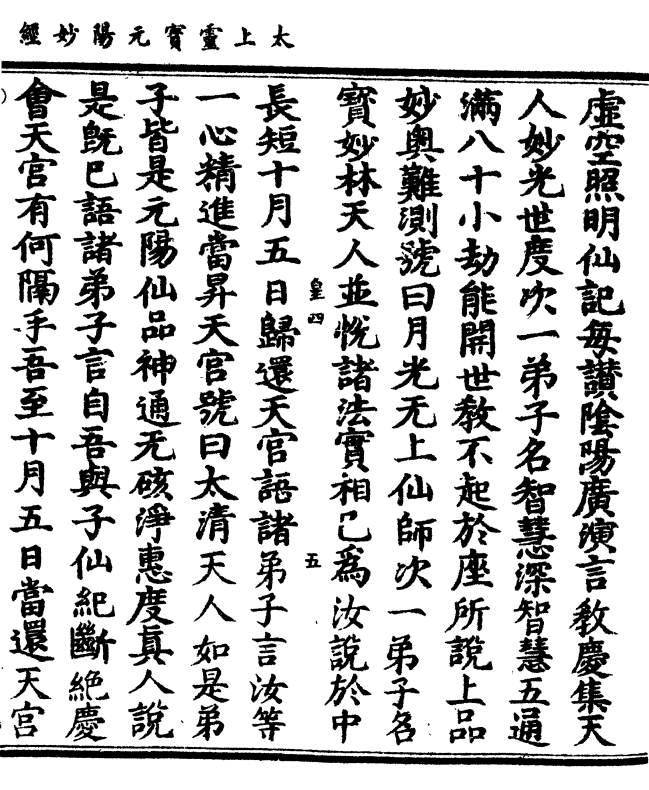 太上靈寶元陽妙經
虛空照明仙記每讃陰陽廣演言教慶集天
人妙光世度次一弟子名智慧深智慧五通
滿八十小劫能開世教不起於座所說上品
妙奥難測號曰月光无上仙師次一弟子名
寳妙林天人並悅諸法實相已為汝說於中
皇四 五
長短十月五日歸還天官語諸弟子言汝等
一心精進當昇天宮號曰太清天人如是弟
子皆是元陽仙品神通无碍淨惠度真人說
是旣已語諸弟子言自吾與子仙紀斷絶慶
會天宮有何隔乎吾至十月五日當還天宮